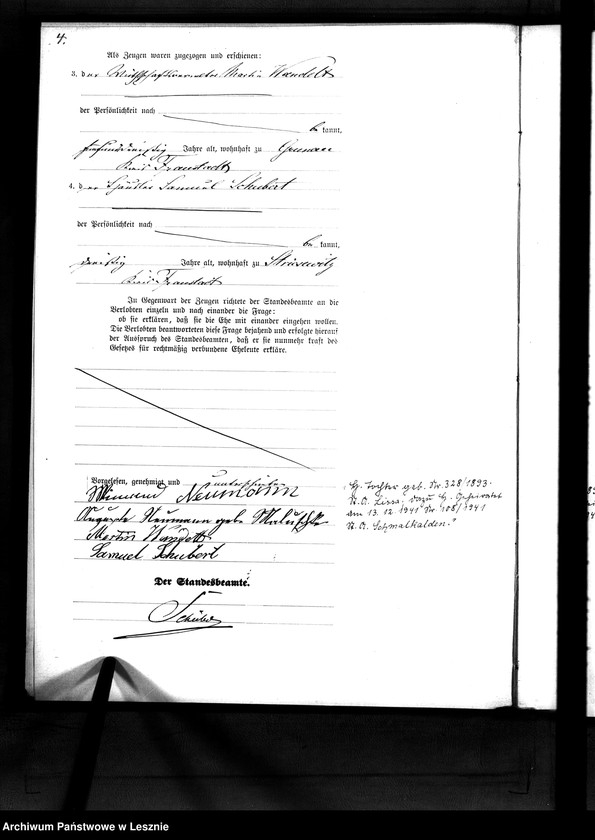 4.
Als Zeugen waren zugezogen und erschienen:
3. der Martin Wandelt
der Persönlichkeit nach
be kannt,
fünfunddreißig Jahre alt, wohnhaft zu
Kreis Fraustadt
4. der Händler Samuel Schubert
der Persönlichkeit nach
be kannt,
dreißig Jahre alt, wohnhaft zu
Kreis Fraustadt
In Gegenwart der Zeugen richtete der Standesbeamte an die
Verlobten einzeln und nach einander die Frage:
ob sie erklären, daß sie die Ehe mit einander eingehen wollen.
Die Verlobten beantworteten diese Frage bejahend und erfolgte hierauf
der Ausspruch des Standesbeamten, daß er sie nunmehr kraft des
Gesetzes für rechtmäßig verbundene Eheleute erkläre.
Vorgelesen, genehmigt und unterschrieben
Neumann
Auguste Neumann geb.
Martin Wandelt
Samuel Schubert
Der Standesbeamte.
"G. Tochter geb. Nr. 328/1893.
St. A. Lissa. dazu G. Geheiratet
am 13.12.1941 Nr. 108/1941
St. A. Schmalkalden."
Archiwum Państwowe w Lesznie